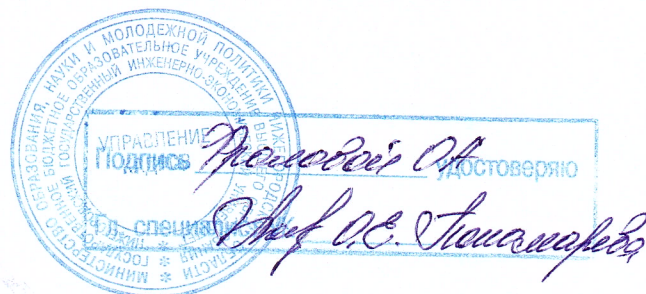 МИНИСТЕРСТВО ОБРАЗОВАНИЯ, НАУКИ И МОЛОДЕЖНОЙ ПОЛИТИКИ НИЖЕГОРОДСКОЙ ОБЛАСТИ
БЮДЖЕТНОЕ ОБРАЗОВАТЕЛЬНОЕ УЧРЕЖДЕНИЕ ВЫСШЕГО
ГОСУДАРСТВЕННЫЙ ИНЖЕНЕРНО-ЭКОНОМ
УПРАВЛЕНИЕ
Подпись Фроловой О.А. удостоверяю
Гл. специалист О.Е. Пономарева